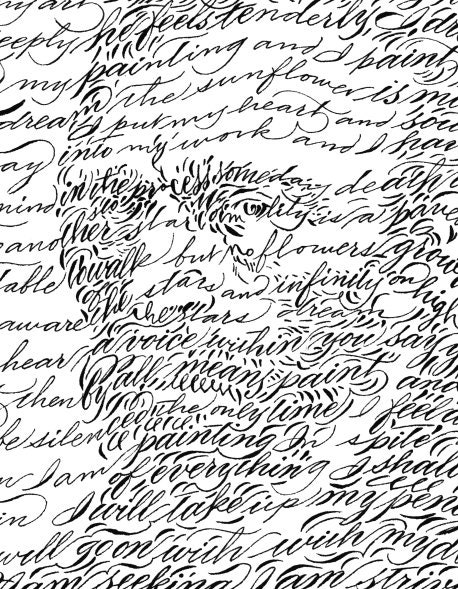 my art
deeply he feels tenderly I d
my painting and I paint
dream in the sunflower is my
I put my heart and sou
into my work and I hav
in the process someday death
mind
another star reality is a pave
to walk but flowers grow
able the stars and infinity on high
aware the stars dream
hear a voice within you say y
then by all means paint and
the only time I feel a
be silen painting In spite
I am of everything I shall
in I will take up my penc
well go on with with my d
am seeking I am striv